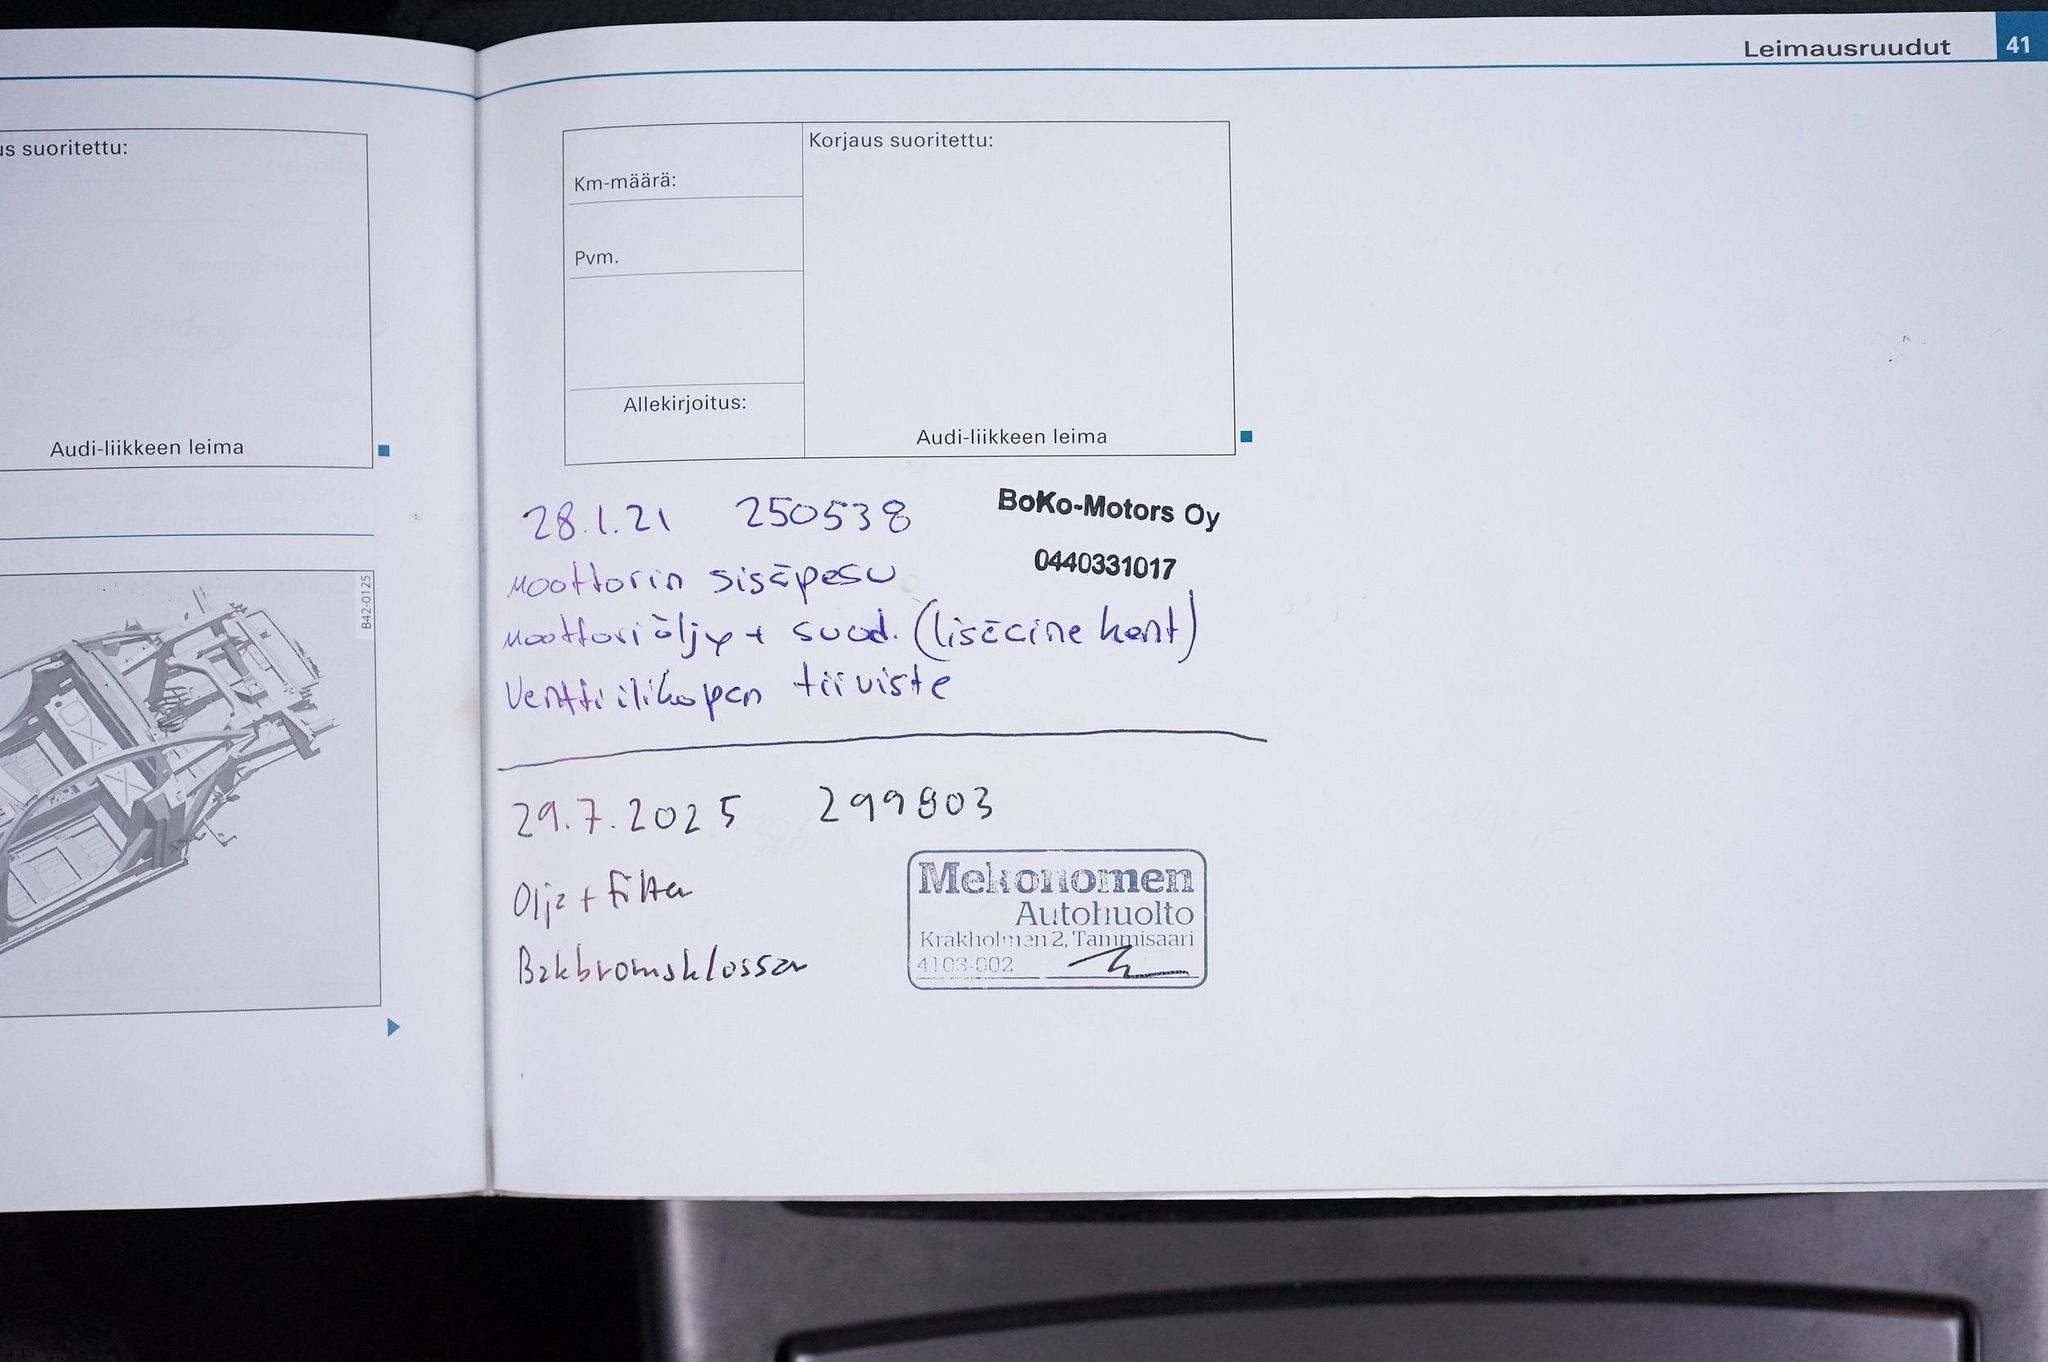 Leimausruudut 41
us suoritettu:
Audi-liikkeen leima
B42-0125
Korjaus suoritettu:
Km-määrä:
Pvm.
Allekirjoitus:
Audi-liikkeen leima
28.1.21 250538
BoKo-Motors Oy
0440331017
moottorin sisäpesu
moottoriöljy + suod. (lisäaine kant)
Venttiilikopan tiiviste
29.7.2025 299803
Olja + Filter
Bakbromsklossar
Mekonomen
Autohuolto
Kråkholmen 2, Tammisaari
4103-002